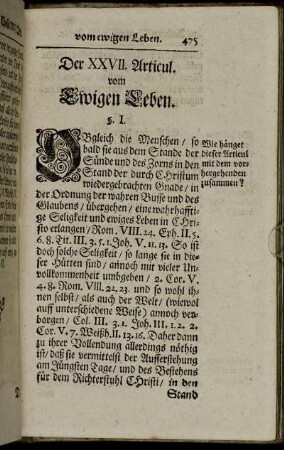 vom ewigen Leben. 475
Der XXVII. Articul.
vom
Ewigen Leben.
§. I.
OBgleich die Menschen / so
bald sie aus dem Stande der
Sünde und des Zorns in den
Stand der durch CHristum
wiedergebrachten Gnade / in
der Ordnung der wahren Busse und des
Glaubens / übergehen / eine wahrhaffti-
ge Seligkeit und ewiges Leben in CHri-
sto erlangen / Rom. VIII. 24. Eph. II. 5.
6. 8. Tit. III. 3. 5. 1. Joh. V. 11. 13. So ist
doch solche Seligkeit / so lange sie in die-
ser Hütten sind / annoch mit vieler Un-
vollkommenheit umbgeben / 2. Cor. V.
4. 8. Rom. VIII. 22. 23. und so wohl ih-
nen selbst / als auch der Welt / (wiewol
auff unterschiedene Weise) annoch ver-
borgen / Col. III. 3. 1. Joh. III. 1. 2. 2.
Cor. V. 7. Weißh. II. 13. 16. Daher dann
zu ihrer Vollendung allerdings nöthig
ist / daß sie vermittelst der Aufferstehung
am Jüngsten Tage / und des Bestehens
für dem Richterstuhl CHristi / in den
Stand
Wie hänget
dieser Articul
mit dem vor-
hergehenden
zusammen?